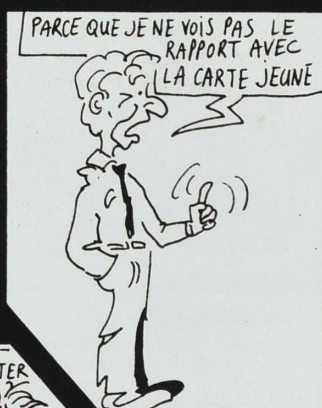 PARCE QUE JE NE VOIS PAS LE
RAPPORT AVEC
LA CARTE JEUNE
TER